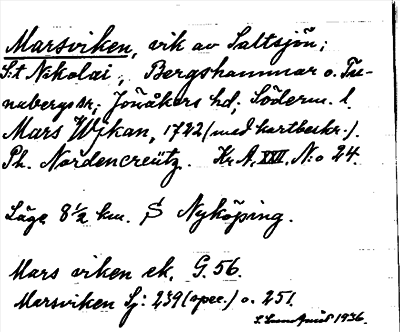 Marsviken, vik av Saltsjön;
S:t Nikolai, Bergshammar o. Tu-
nabergs sn, Jönåkers hd, Söderm. l.
Mars Wjkan, 1722 (med kartbeskr.).
Ph. Nordencreütz. Kr. A. XXII. N:o 24.
Läge 8 1/2 km. S Nyköping.
Mars viken ek. G. 56.
Marsviken Sj: 239 (spec.) o. 251.
1936.